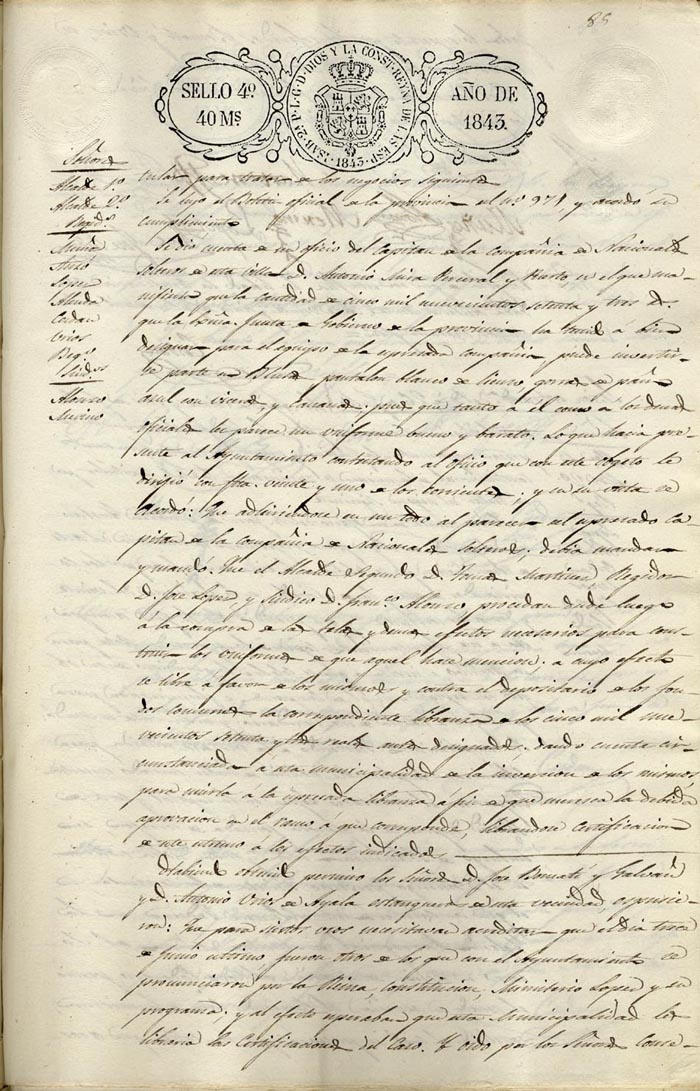 85
SELLO 4º
40 Ms
ISAB. 2ª P. L. G. D. DIOS Y LA CONST. REYNA DE LAS ESP.
1843.
AÑO DE
1843.
Señores
Alcalde 1º
Alcalde 2º
Regid.s
Lopez
Cerdan
Síndicos
Alonso
Merino
cular para tratar de los negocios siguientes
Se leyó el Boletin oficial de la provincia el nº 971, y acordó su
cumplimiento
Se dio cuenta de un oficio del Capitan de la compañia de Nacionales
solteros de esta villa D. Antonio Mira Perceval y en el que ma-
nifiesta que la cantidad de cinco mil nuevecientos setenta y tres rs.
que la Exma. Junta de Gobierno de la provincia ha tenido a bien
designar para el equipo de la expresada compañia puede invertir-
se parte en Blusa pantalon blanco de lienzo, gorras de paño
azul con viceras, y Cananas; pues que tanto a él como a los demas
oficiales les parece un uniforme bueno y barato. Lo que hacia pre-
sente al Ayuntamiento contestando al oficio que con este objeto le
dirijió con fha. veinte y uno de los corrientes; y en su vista se
Acordó: Que adhiriendose en un todo al parecer del espresado Ca-
pitan de la compañia de Nacionales solteros, debia mandar
y mandó. Que el Alcalde Segundo D. Tomas Martinez Regidor
D. Jose Lopez y Sindico D. Franco. Alonso procedan desde luego
á la compra de las telas y demas efectos necesarios para cons-
truir los uniformes de que aquel hace mencion; a cuyo efecto
se libre a favor de los mismos y contra el depositario de los fon-
dos comunes la correspondiente libranza de los cinco mil nue-
vecientos setenta y tres reales antes designados; dando cuenta cir-
cunstanciada á esta municipalidad de la inversion de los mismos
para unirla a la espresada libranza á fin de que meresca la debida
aprovacion en el ramo á que corresponde, librandose Certificacion
de este acuerdo a los efectos indicados.
permiso los Señores D. Jose Bonmati y Galvañ
y D. Antonio Urios de Ayala estanquero de esta vecindad, espusie-
ron: Que para justos usos necesitavan acreditar que el dia trece
de Junio ultimo fueron otros de los que con el Ayuntamiento se
pronunciaron por la Reina, Constitucion, Ministerio Lopez y su
programa; y al efecto esperaban que esta Municipalidad les
libraria las Certificaciones del Caso. Y oido por los Señores conce-